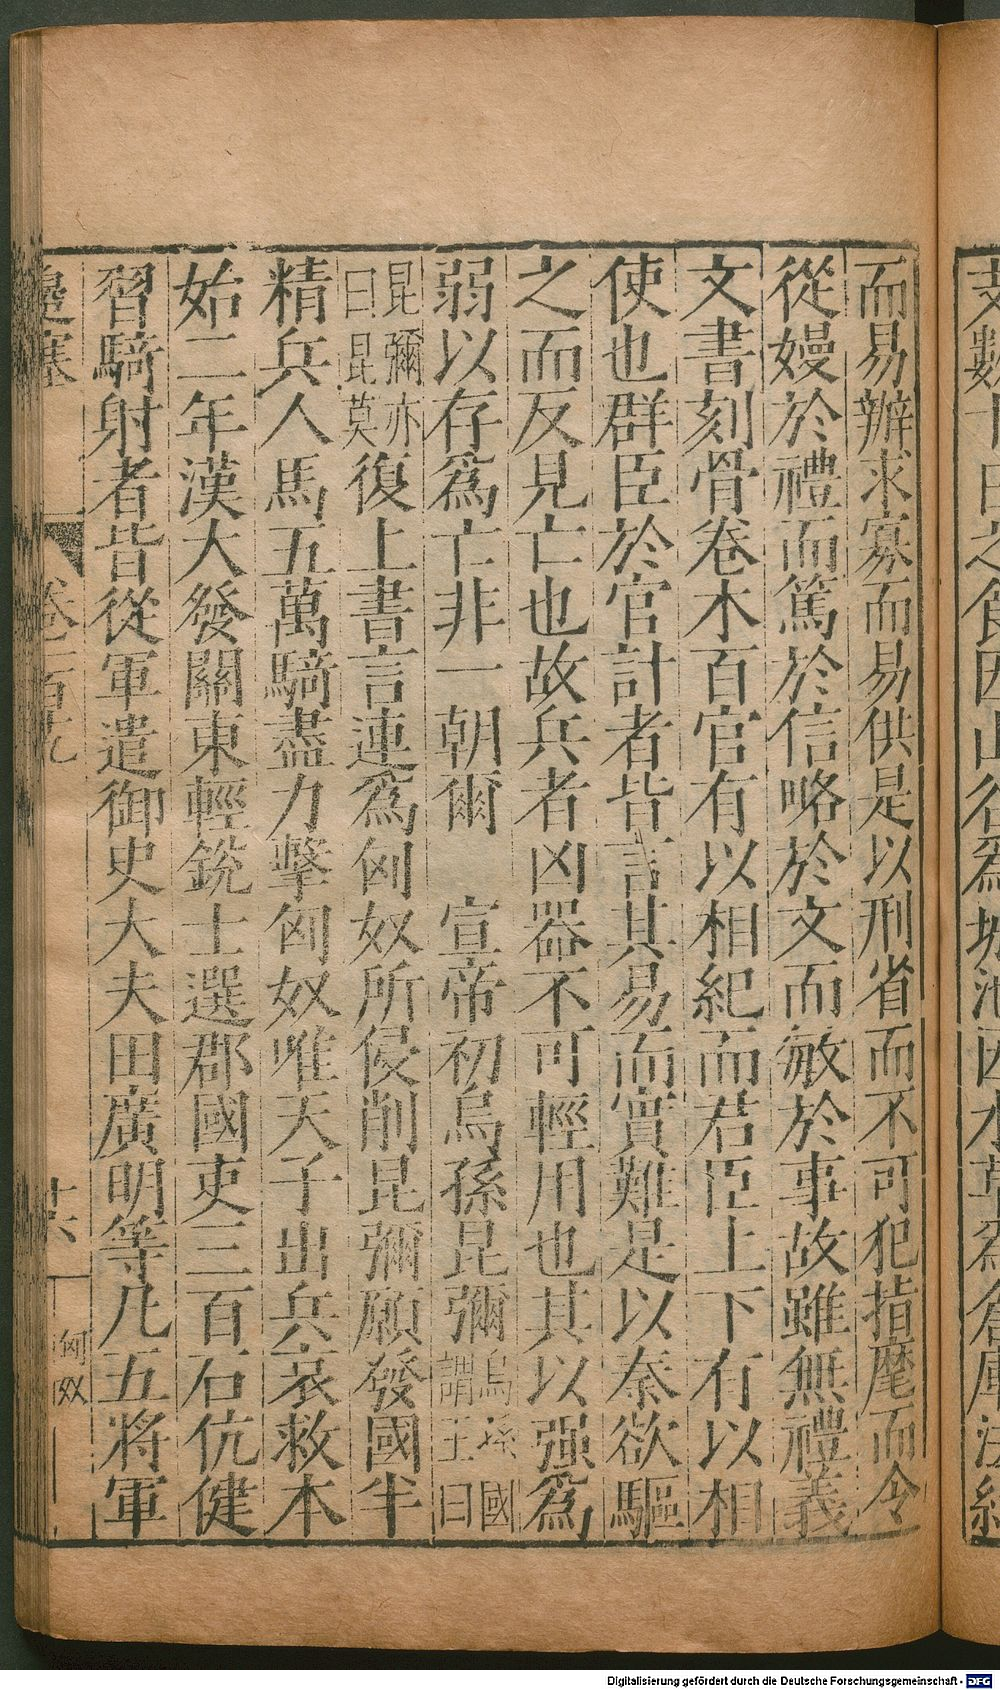 支數十由之食因山谷爲城池因水草爲倉庫法約
而易辦求寡而易供是以刑省而不可犯指麾而令
從嫚於禮而篤於信略於文而敏於事故雖無禮義
文書刻骨卷木百官有以相紀而君臣上下有以相
使也群臣於官計者皆言其易而實難是以秦欲驅
之而反見亡也故兵者凶器不可輕用也其以强爲
弱以存爲亡非一朝爾 宣帝初烏孫昆彌烏孫國謂王曰
昆彌亦曰昆莫復上書言連爲匈奴所侵削昆彌願發國半
精兵人馬五萬騎盡力擊匈奴唯天子出兵哀救本
始二年漢大發關東輕銳士選郡國吏三百石伉健
習騎射者皆從軍遣御史大夫田廣明等凡五將軍
邊塞 卷二百九 十六 匈奴
Digitalisierung gefördert durch die Deutsche Forschungsgemeinschaft - DFG